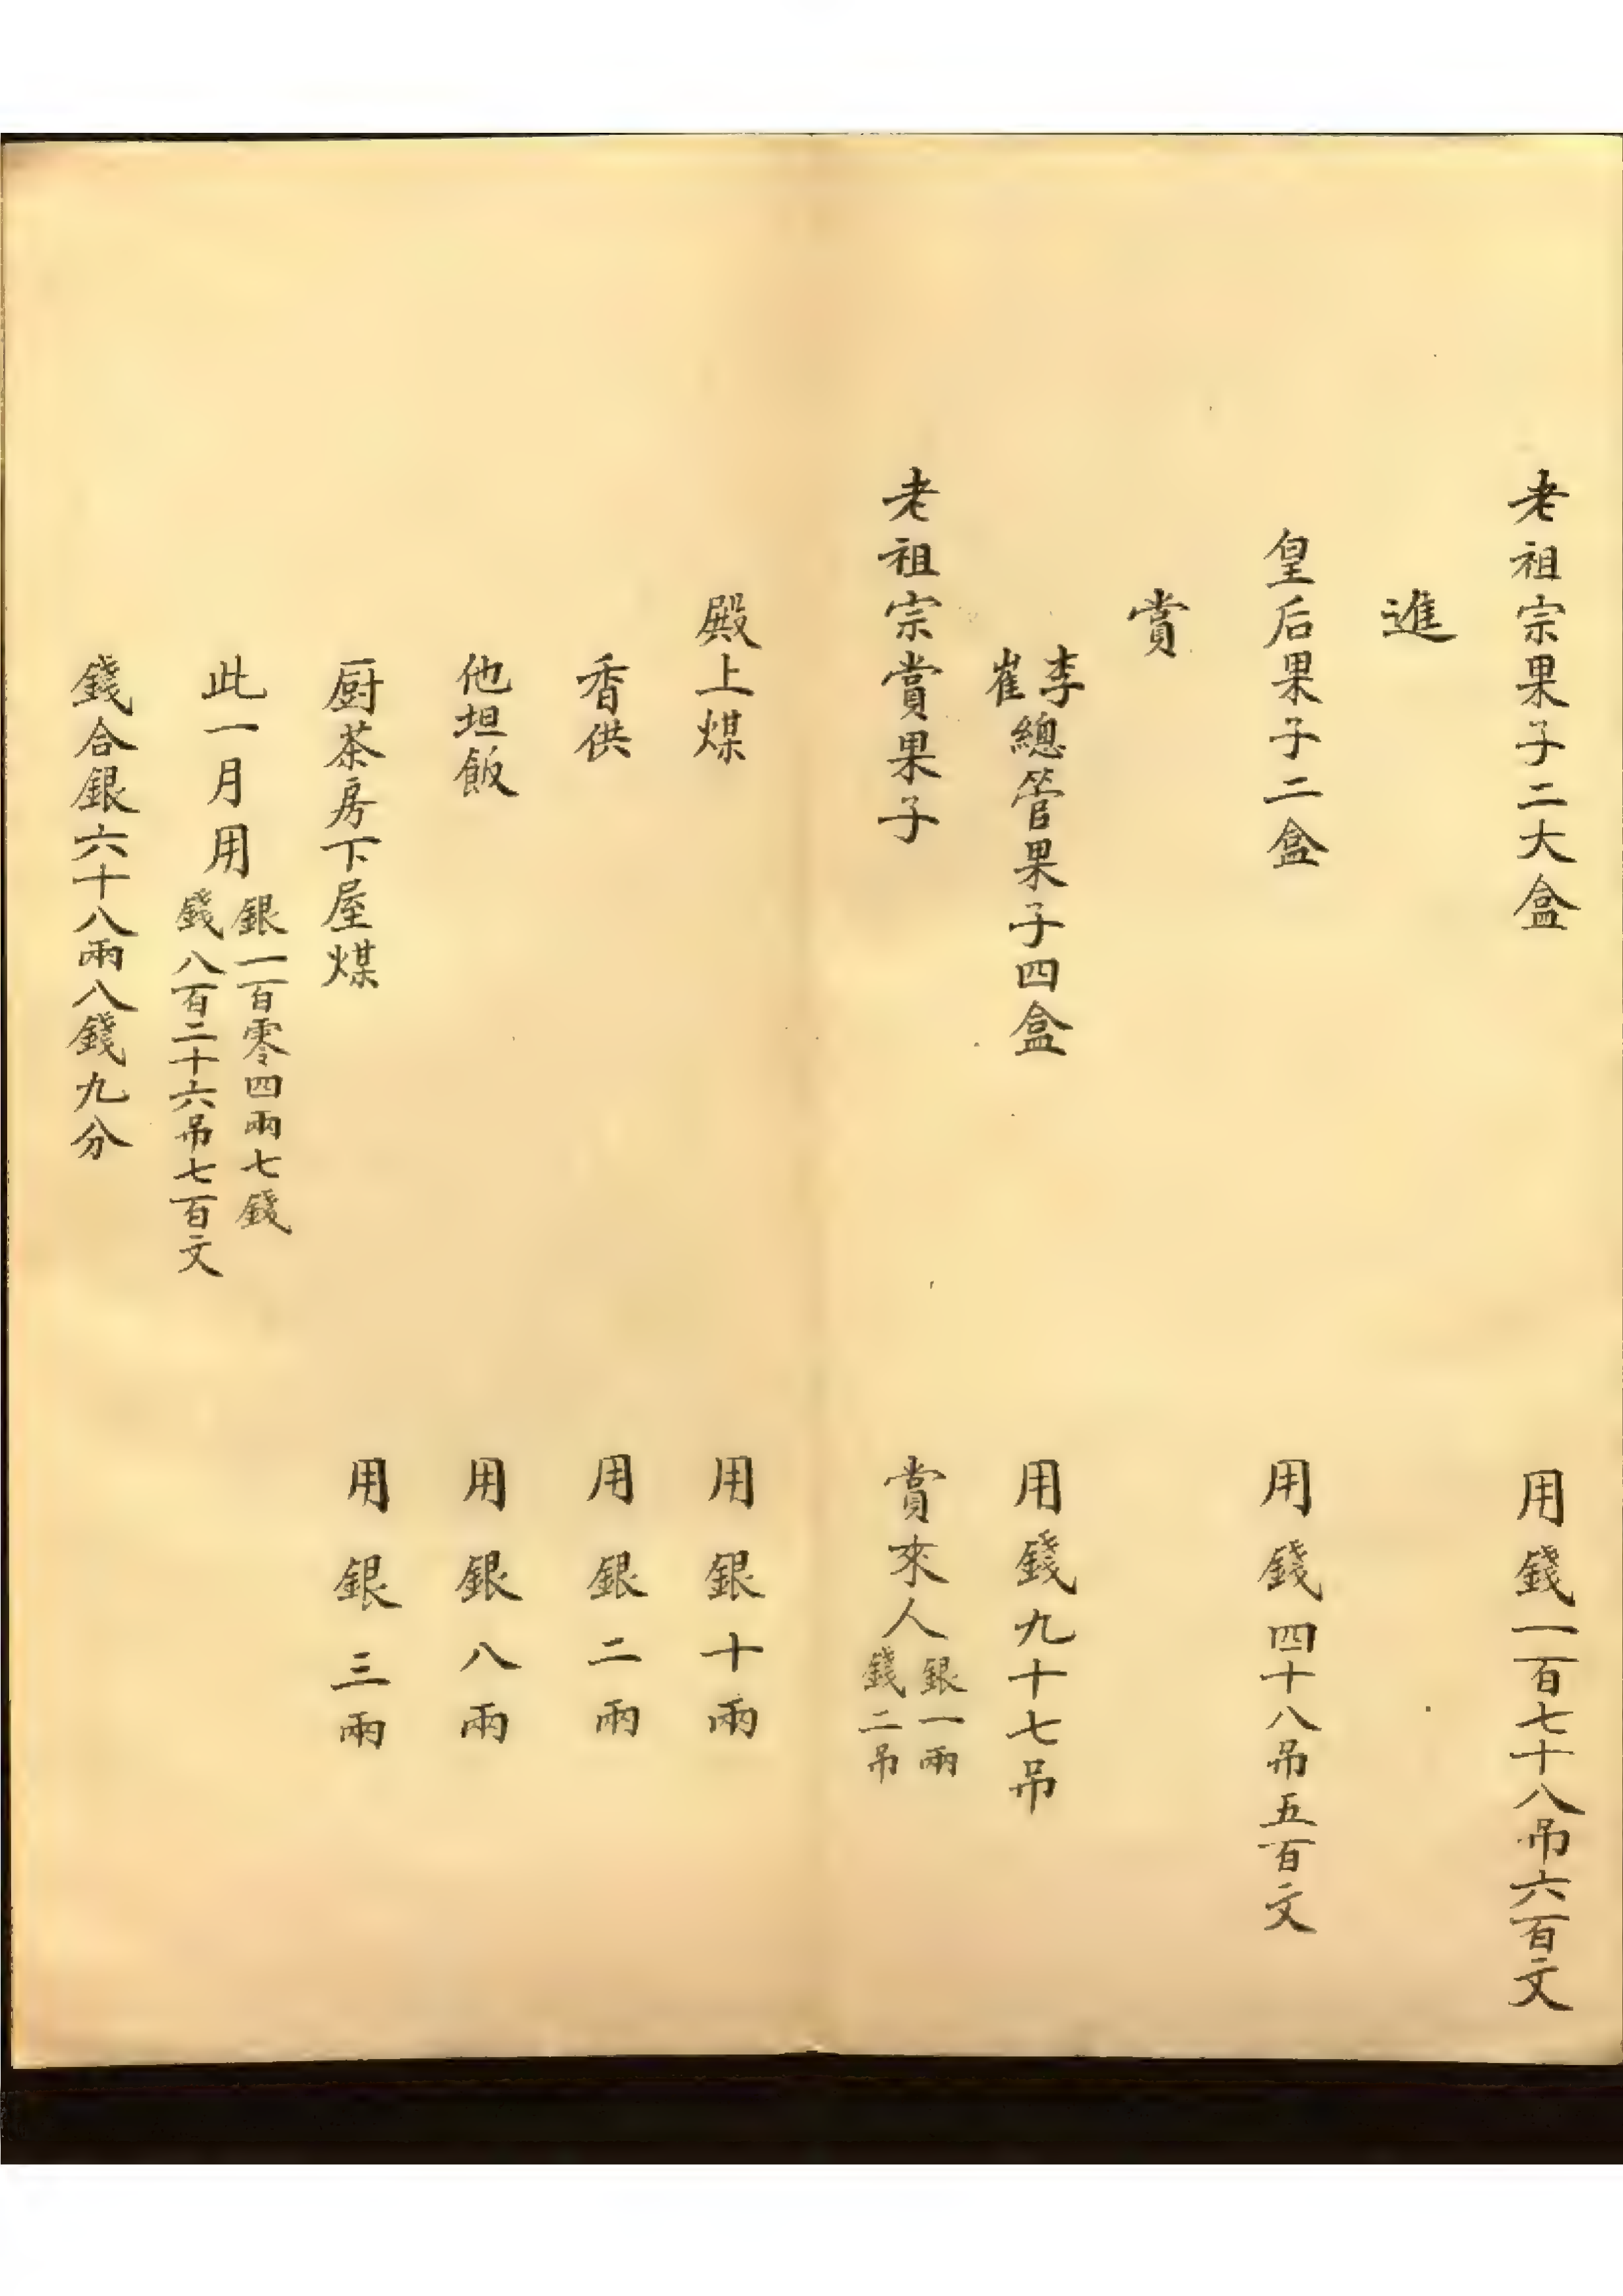 老祖宗果子二大盒 用錢一百七十八吊六百文
進
皇后果子二盒 用錢四十八吊五百文
賞
李崔總管果子四盒 用錢九十七吊
老祖宗賞果子 賞來人銀一兩錢二吊
殿上煤 用銀十兩
香供 用銀二兩
他坦飯 用銀八兩
厨茶房下屋煤 用銀三兩
此一月用銀一百零四兩七錢錢八百二十六吊七百文
錢合銀六十八兩八錢九分